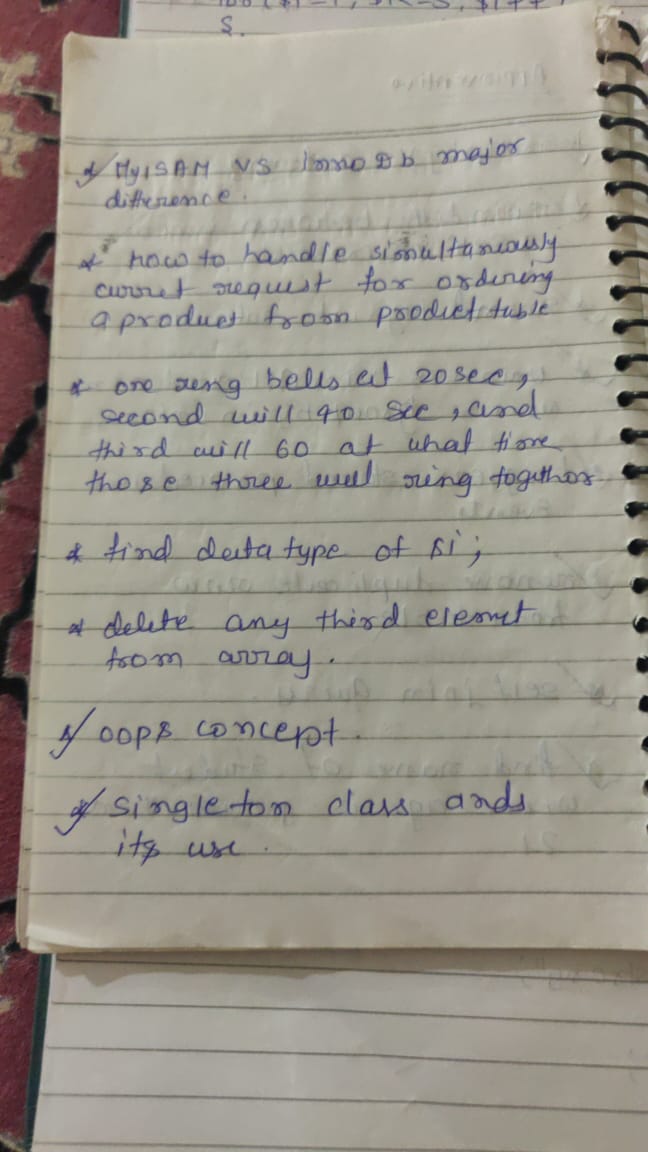 S.
* MyISAM VS InnoDb major
difference.
* how to handle simultaniously
request for ordering
a product from product table
* one reng bells at 20 sec,
second will 40 sec, and
third will 60 at what time
those three will ring togither
* find data type of $i;
* delete any third elemnt
from array.
* OOPS concept.
* singleton class ands
its use.